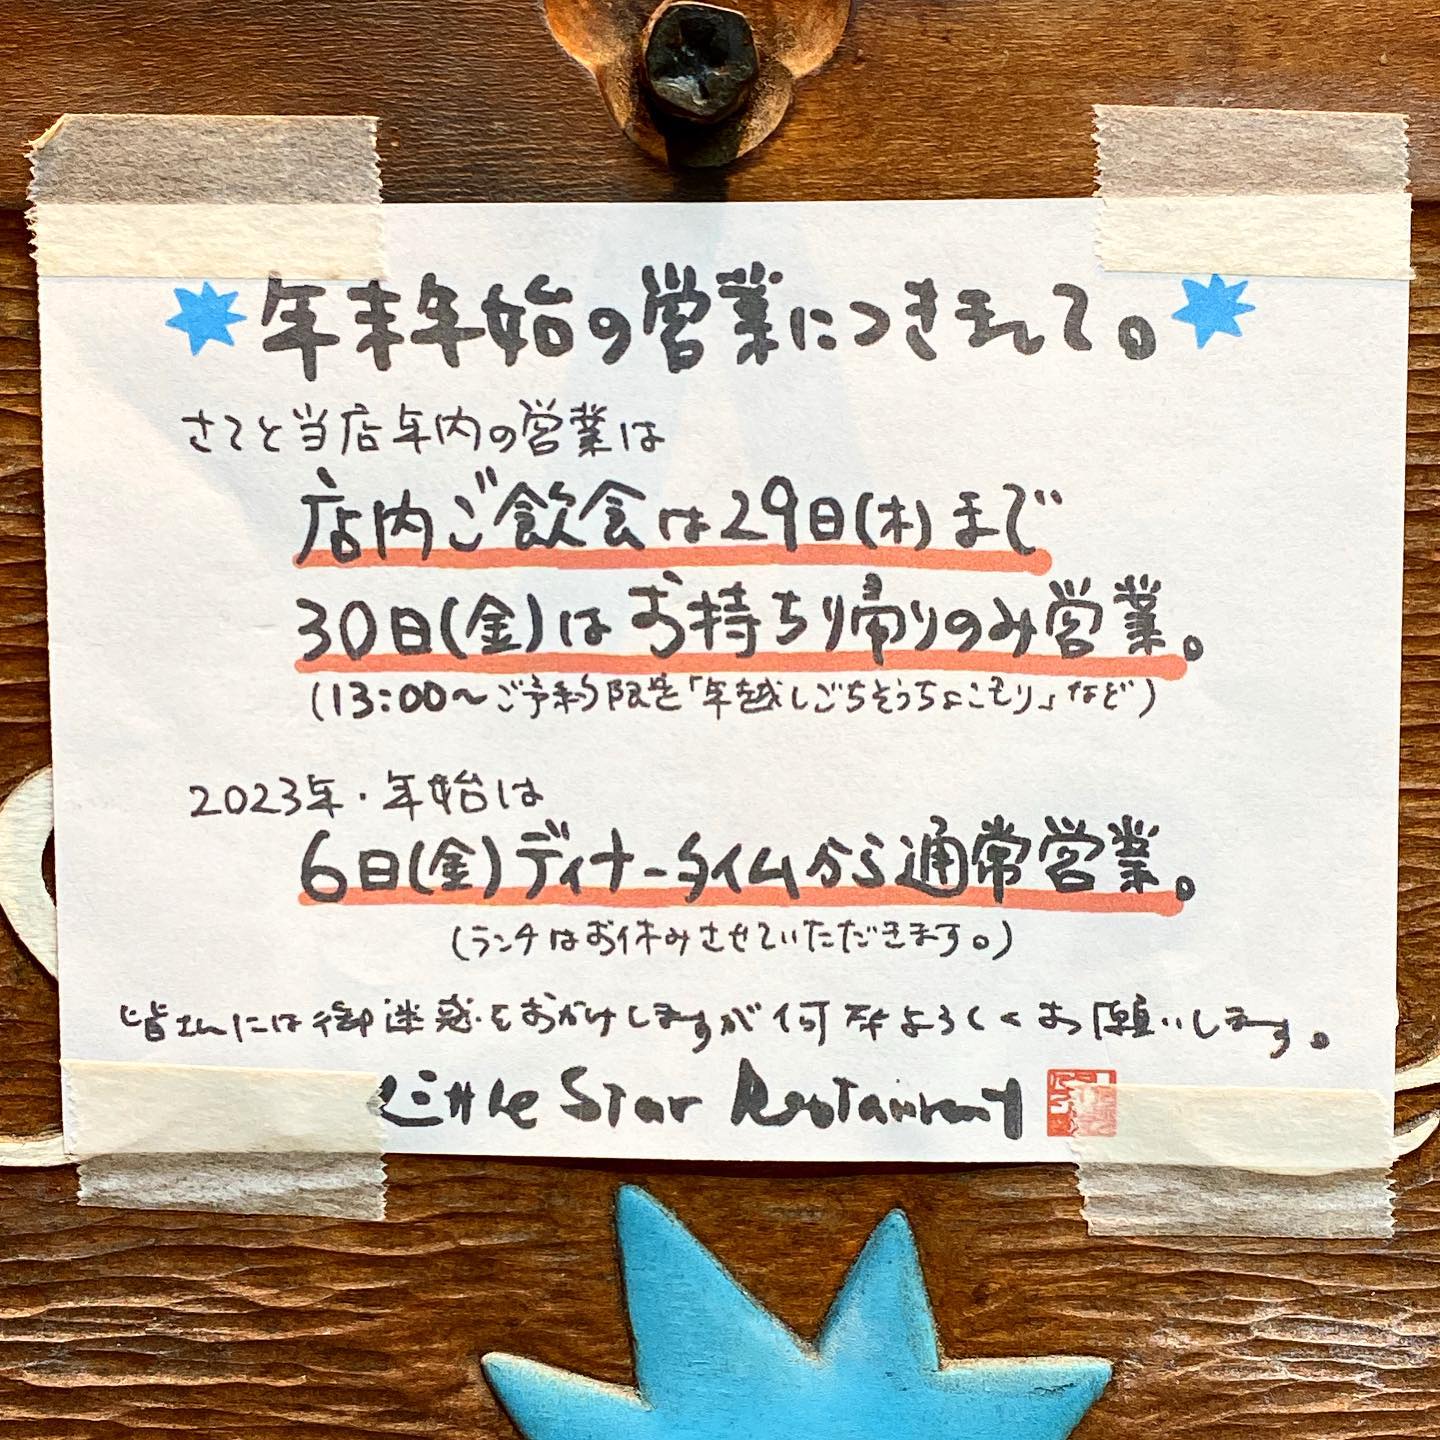 年末年始の営業につきまして。
さてと当店年内の営業は
店内ご飲会は29日(木)まで
30日(金)はお持ち帰りのみ営業。
(13:00〜ご予約限定「年越しごちそうちょこもり」など)
2023年・年始は
6日(金)ディナータイムから通常営業。
(ランチはお休みさせていただきます。)
皆さんには御迷惑をおかけしますが何卒よろしくお願いします。
Little Star Restaurant